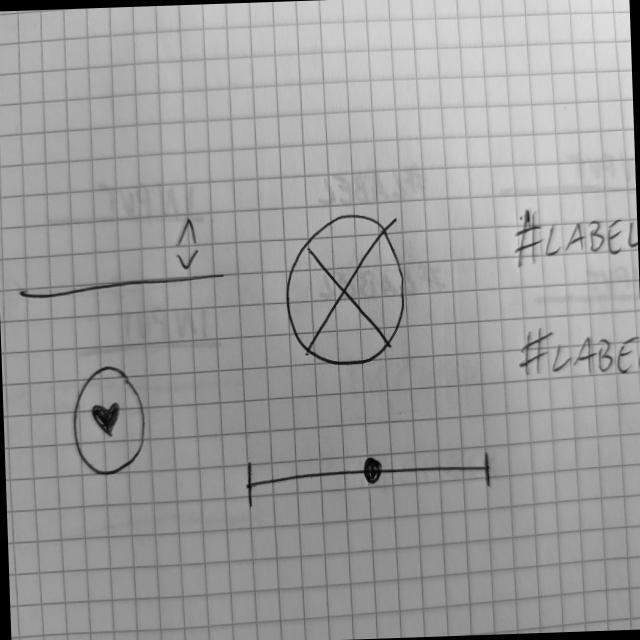 #LABEL
#LABE